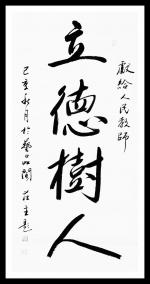 獻給人民教師
立德樹人
己亥秋月於藝品閣 莊主題